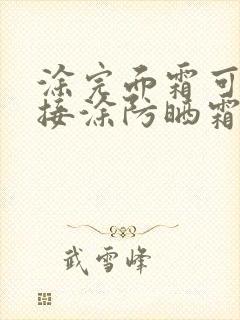 涂完面霜可
接涂防晒霜
武雪峰